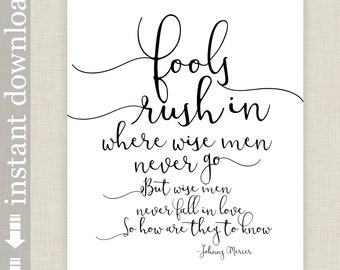 instant download
fools
rush in
where wise men
never go
But wise men
never fall in love
So how are they to know
-Johnny Mercer